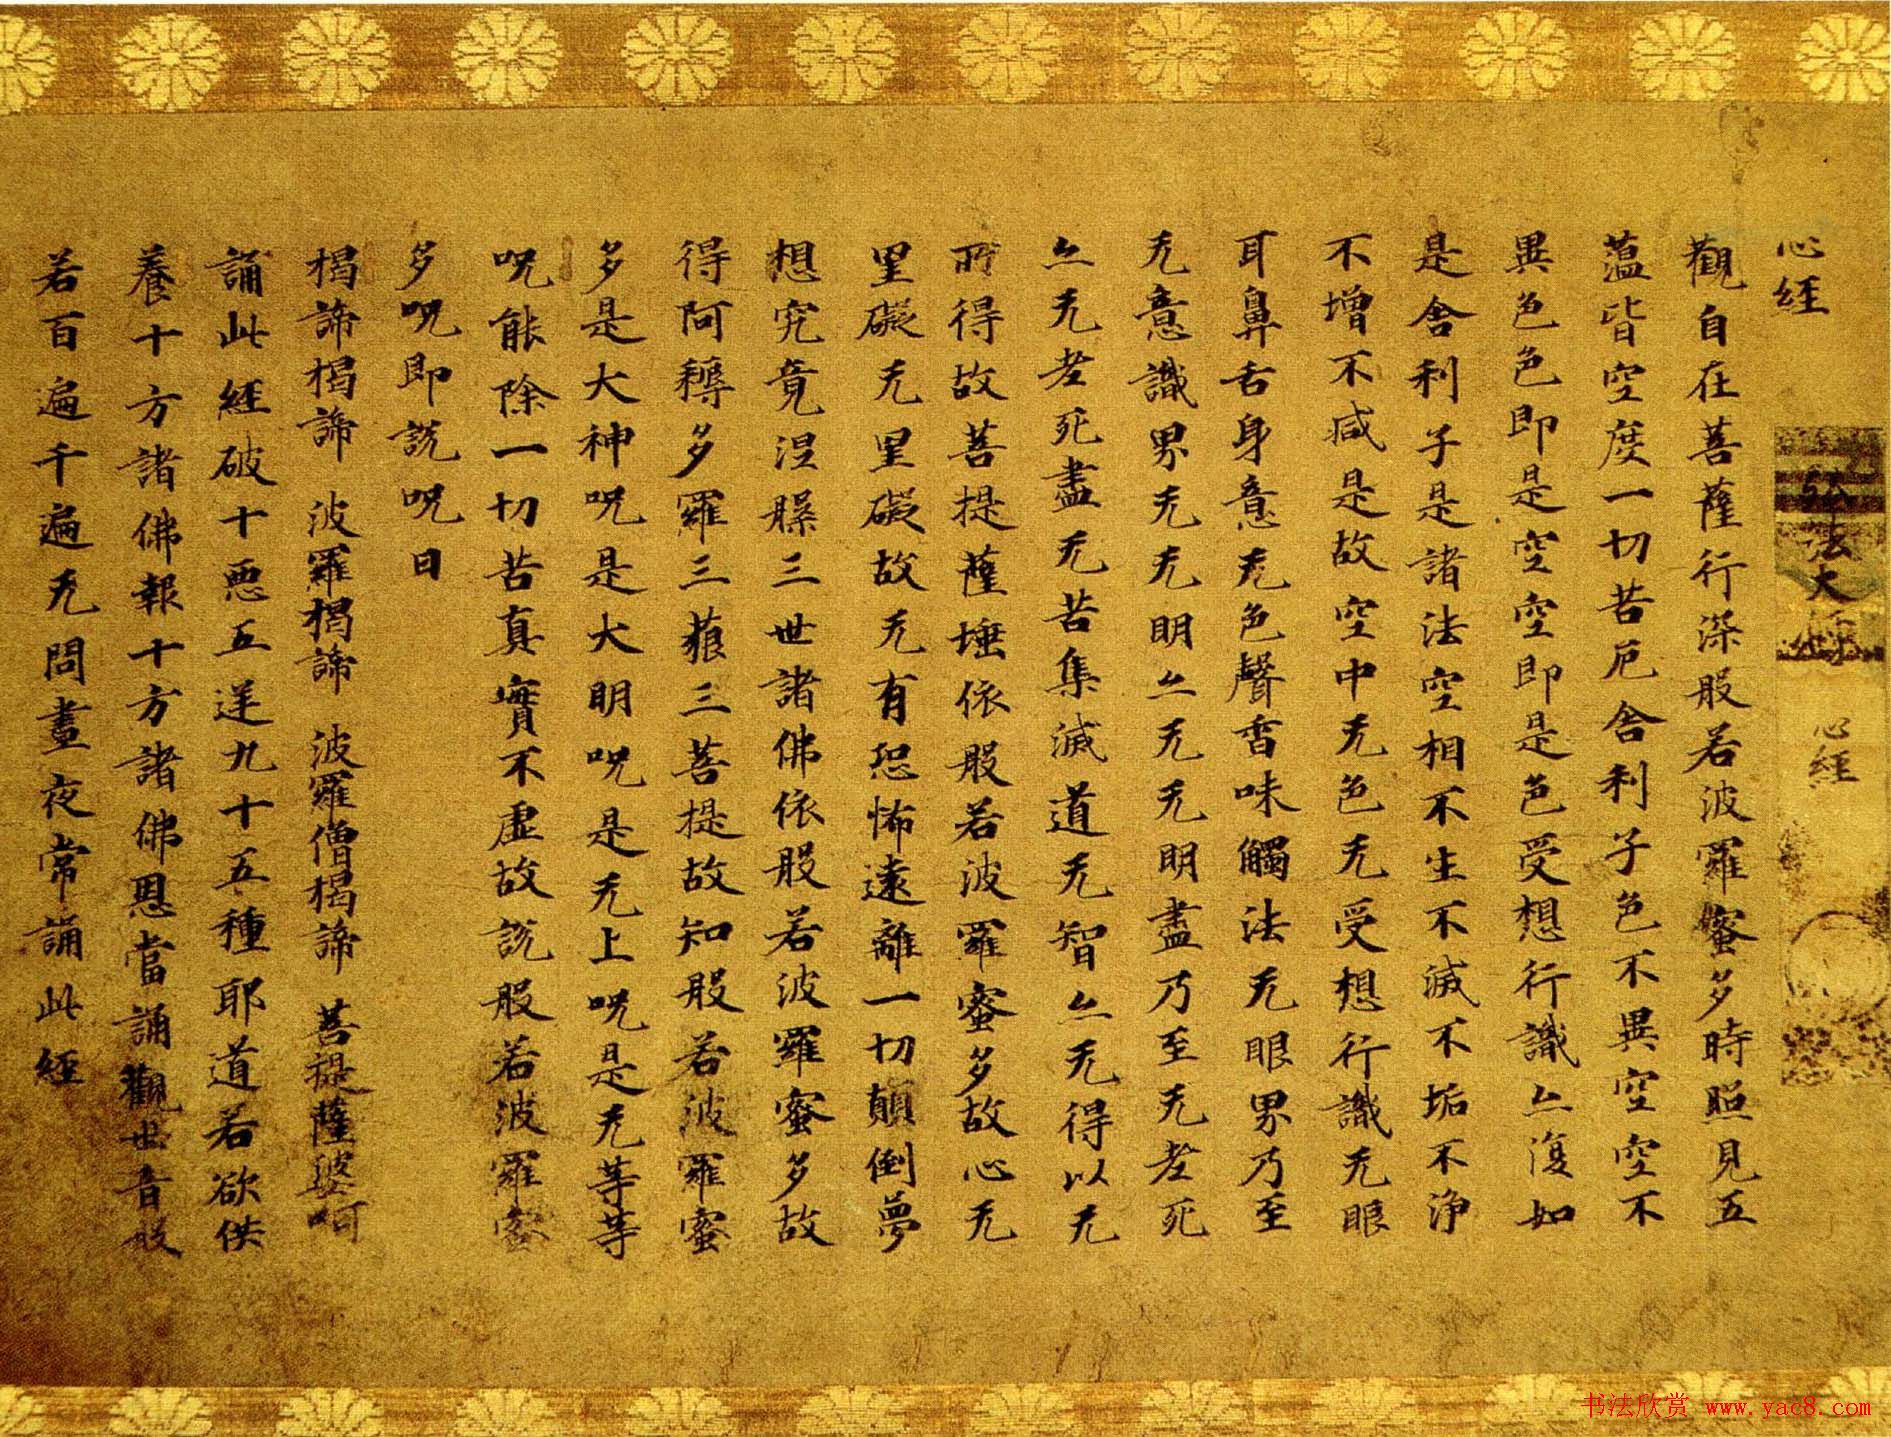 弘法大師 心経
心経
觀自在菩薩行深般若波羅蜜多時照見五
蕴皆空度一切苦厄舍利子色不異空空不
異色色即是空空即是色受想行識亠復如
是舍利子是諸法空相不生不滅不垢不净
不增不减是故空中无色无受想行識无眼
耳鼻舌身意无色聲香味觸法无眼界乃至
无意識界无无明亠无无明盡乃至无老死
亠无老死盡无苦集滅道无智亠无得以无
所得故菩提薩埵依般若波羅蜜多故心无
罣礙无罣礙故无有恐怖遠離一切顛倒夢
想究竟涅槃三世諸佛依般若波羅蜜多故
得阿耨多羅三藐三菩提故知般若波羅蜜
多是大神呪是大明呪是无上呪是无等等
呪能除一切苦真實不虛故説般若波羅蜜
多呪即説呪曰
揭諦揭諦 波羅揭諦 波羅僧揭諦 菩提薩婆呵
誦此經破十悪五逆九十五種耶道若欲供
養十方諸佛報十方諸佛恩當誦觀世音般
若百遍千遍无問晝夜常誦此經
书法欣赏 www.yac8.com